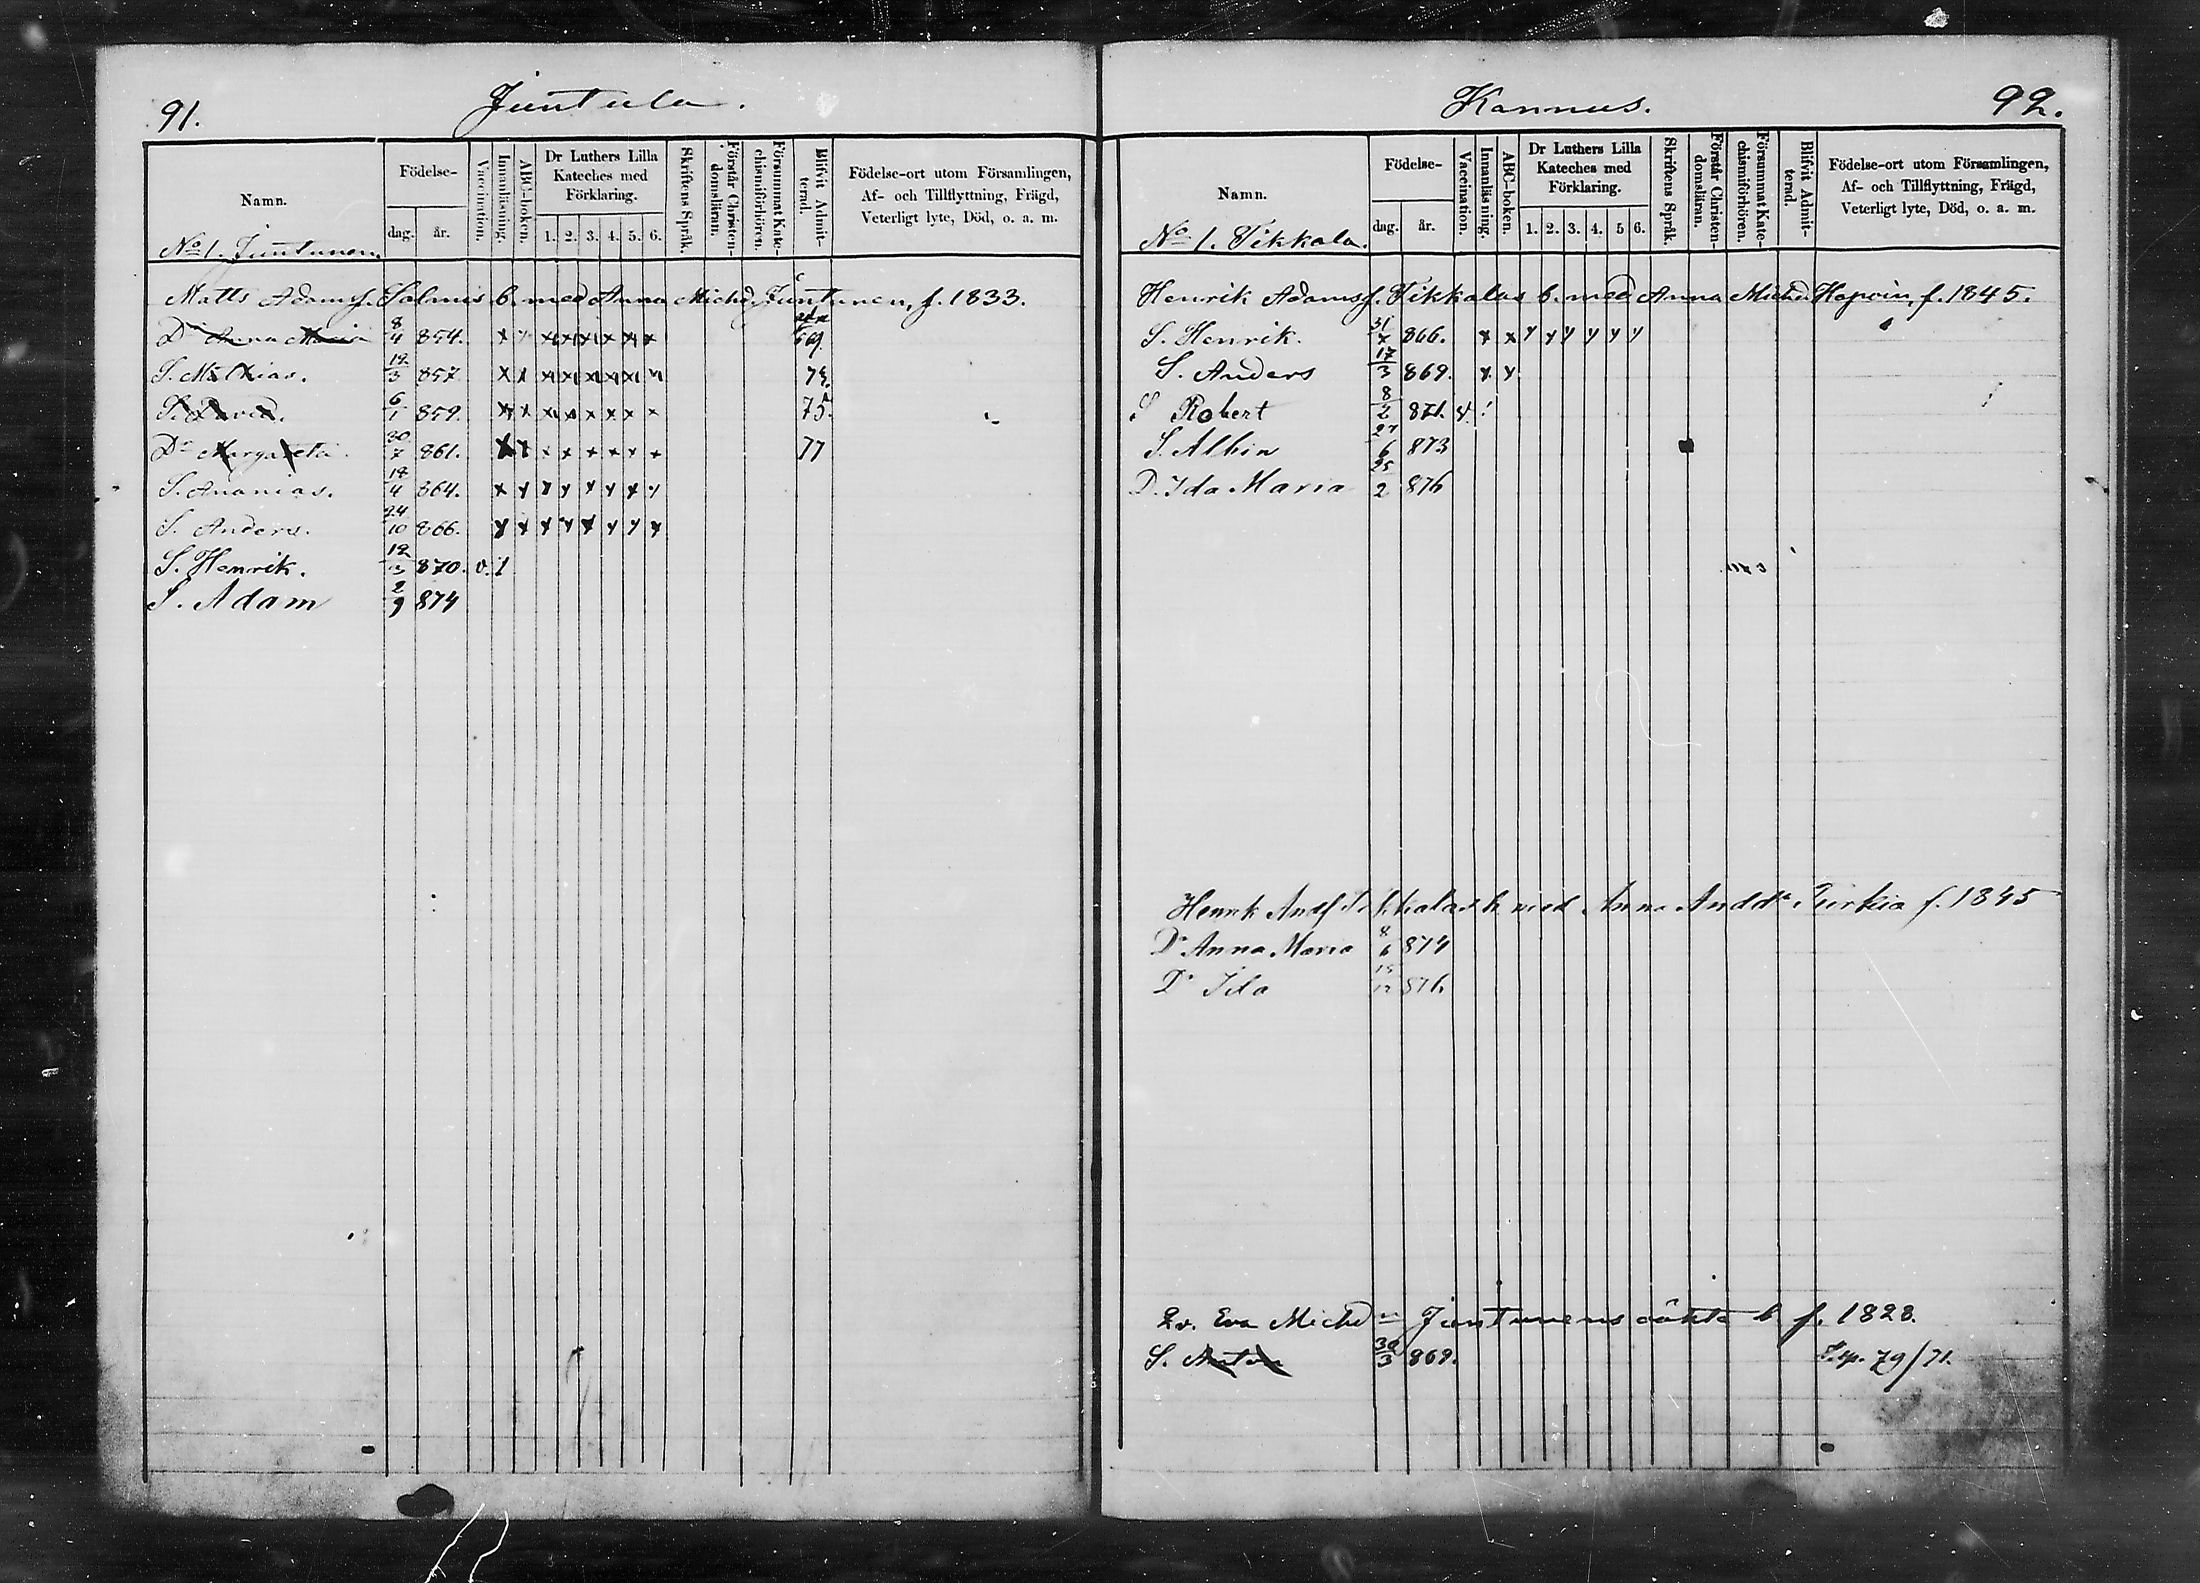 91.
Juntula.
Namn.
Födelse-
dag.
år.
Vaccination.
Innanläsning.
ABC-boken.
Dr Luthers Lilla
Kateches med
Förklaring.
1. 2. 3. 4. 5. 6.
Skriftens Språk.
Förstår Christen-
domsläran.
Försummat Kate-
chismiförhören.
Blifvit Admit-
terad.
Födelse-ort utom Församlingen,
Af- och Tillflyttning, Frägd,
Veterligt lyte, Död, o. a. m.
No 1. Juntunen.
Matts Adamsf. Salmis b. med Anna Michd. Juntunen, f. 1833.
Dr Anna Maria 8/4 854. x x x x x x x x 69.
S. Mathias. 12/3 857 x x x x x x x x
S. David. 6/1 859. x x x x x x x x 75.
Dr Margareta 30/7 861. x x x x x x x x 77
S. Ananias. 18/4 864. x x x x x x x x
S. Anders. 24/10 866. x x x x x x x x
S. Henrik. 12/3 870. v. 1
S. Adam 2/9 874
Kannus.
92.
Namn.
Födelse-
dag.
år.
Vaccination.
Innanläsning.
ABC-boken.
Dr Luthers Lilla
Kateches med
Förklaring.
1. 2. 3. 4. 5 6.
Skriftens Språk.
Förstår Christen-
domsläran.
Försummat Kate-
chismiförhören.
Blifvit Admit-
terad.
Födelse-ort utom Församlingen,
Af- och Tillflyttning, Frägd,
Veterligt lyte, Död, o. a. m.
No 1. Tikkala.
Henrik Adamsf. Tikkalas b. med Anna Michd f. 1845.
S. Henrik. 866. x x x x x x x x
S. Anders 17/3 869. x x
S Robert 8/2 871.
S. Albin 27/6 873
D. Ida Maria 25/2 876
Henrik Tikkalas b. med Anna Andd Turkia f. 1845
Dr Anna Maria 8/6 874
Dr Ida 15/12 876
Qv. Eva Michd Juntunens oäkta b f. 1828.
S. Anton 30/3 869. 79/71.